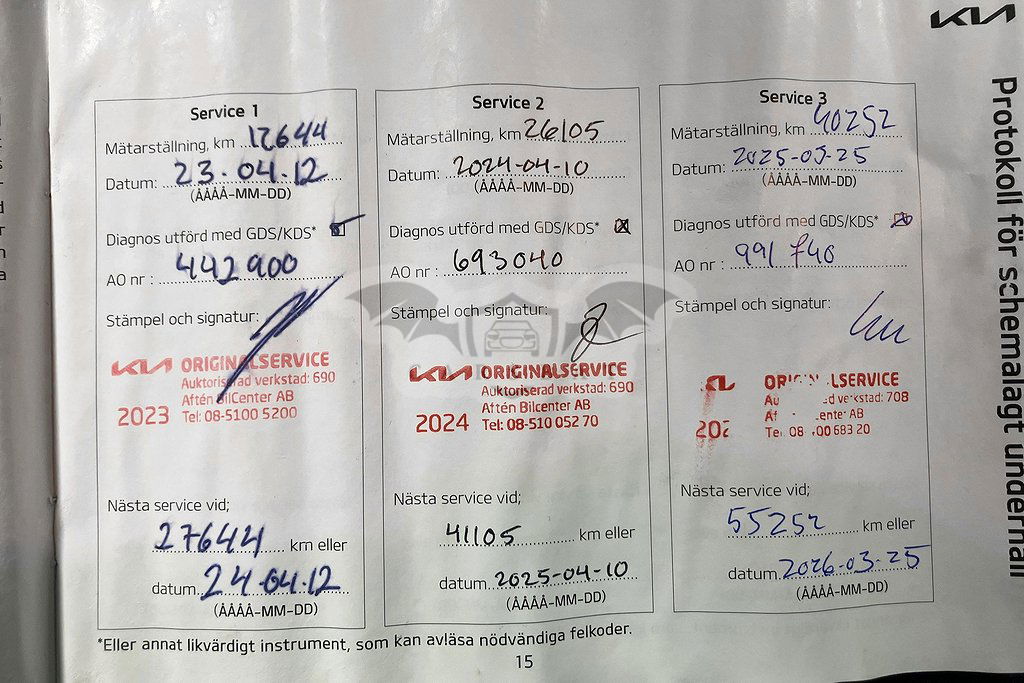 KIA
Protokoll för schemalagt underhåll
Service 1
Mätarställning, km 12644
Datum: 23.04.12
(ÅÅÅÅ-MM-DD)
Diagnos utförd med GDS/KDS*
AO nr : 442900
Stämpel och signatur:
KIA ORIGINALSERVICE
Auktoriserad verkstad: 690
Aftén Bilcenter AB
2023 Tel: 08-5100 5200
Nästa service vid;
27644 km eller
datum 24.04.12
(ÅÅÅÅ-MM-DD)
Service 2
Mätarställning, km 26105
Datum: 2024-04-10
(ÅÅÅÅ-MM-DD)
Diagnos utförd med GDS/KDS*
AO nr : 693040
Stämpel och signatur:
KIA ORIGINALSERVICE
Auktoriserad verkstad: 690
Aftén Bilcenter AB
2024 Tel: 08-510 052 70
Nästa service vid;
41105 km eller
datum 2025-04-10
(ÅÅÅÅ-MM-DD)
Service 3
Mätarställning, km 40252
Datum: 2025-03-25
(ÅÅÅÅ-MM-DD)
Diagnos utförd med GDS/KDS*
AO nr : 991740
Stämpel och signatur:
verkstad: 708
AB
Nästa service vid;
55252 km eller
datum 2026-03-25
(ÅÅÅÅ-MM-DD)
*Eller annat likvärdigt instrument, som kan avläsa nödvändiga felkoder.
15